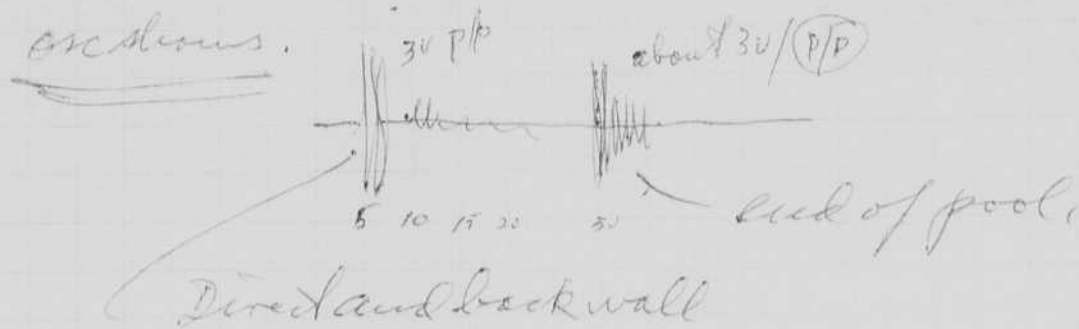 osc shows.
3v p/p
about 3v/p/p
5 10 15 20 30
end of pool.
Direct and back wall